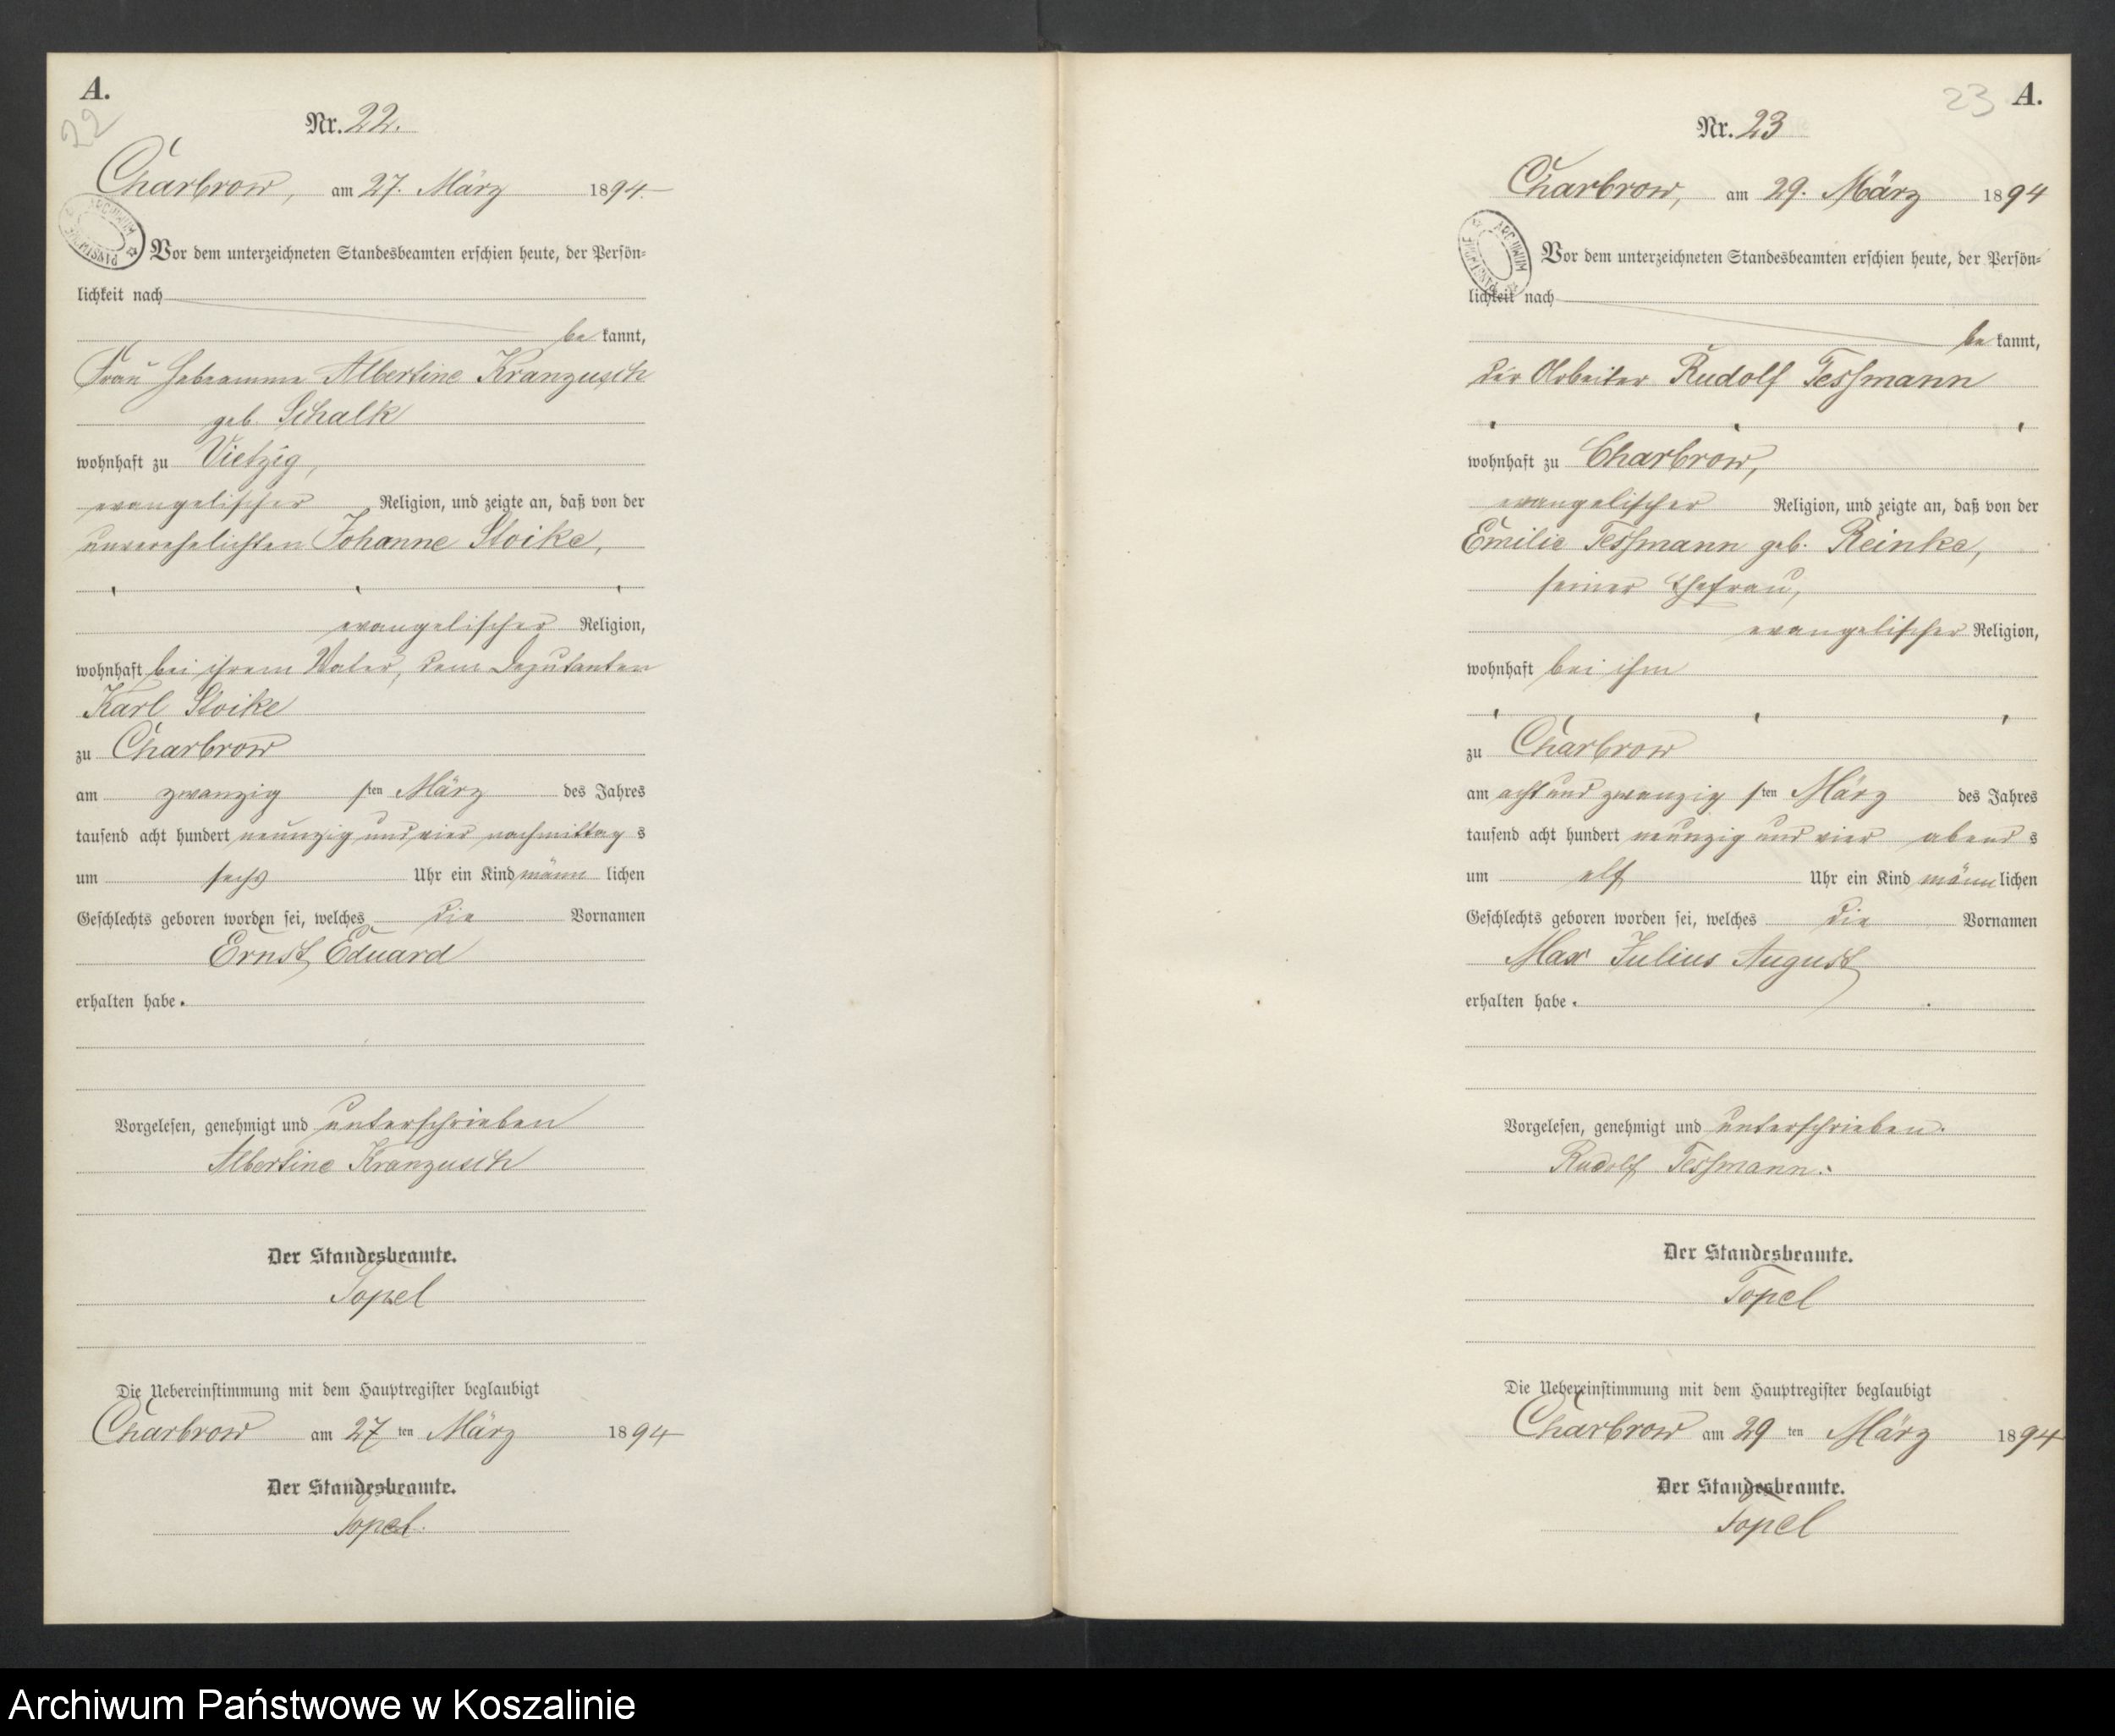 A.
22
Nr. 22.
Charbrow, am 27. März 1894.
ARCHIWUM PAŃSTWOWE
Vor dem unterzeichneten Standesbeamten erschien heute, der Persön-
lichkeit nach
be kannt,
Frau Hebeamme Albertine Kranzusch
geb. Schalk
wohnhaft zu Vietzig,
evangelischer Religion, und zeigte an, daß von der
unverehelichten Johanne Stoike,
evangelischer Religion,
wohnhaft bei ihrem Vater, dem Deputanten
Karl Stoike
zu Charbrow
am zwanzig sten März des Jahres
tausend acht hundert neunzig und vier nachmittag s
um sechs Uhr ein Kind männ lichen
Geschlechts geboren worden sei, welches die Vornamen
Ernst Eduard
erhalten habe.
Vorgelesen, genehmigt und unterschrieben
Albertine Kranzusch
Der Standesbeamte.
Topel
Die Uebereinstimmung mit dem Hauptregister beglaubigt
Charbrow am 27 ten März 1894
Der Standesbeamte.
Topel.
23 A.
Nr. 23
Charbrow, am 29. März 1894
ARCHIWUM PAŃSTWOWE
Vor dem unterzeichneten Standesbeamten erschien heute, der Persön-
lichkeit nach
be kannt,
der Arbeiter Rudolf Tessmann
wohnhaft zu Charbrow,
evangelischer Religion, und zeigte an, daß von der
Emilie Tessmann geb. Reinke,
seiner Ehefrau,
evangelischer Religion,
wohnhaft bei ihm
zu Charbrow
am acht und zwanzig sten März des Jahres
tausend acht hundert neunzig und vier abend s
um elf Uhr ein Kind männ lichen
Geschlechts geboren worden sei, welches die Vornamen
Max Julius August
erhalten habe.
Vorgelesen, genehmigt und unterschrieben.
Rudolf Tessmann.
Der Standesbeamte.
Topel
Die Uebereinstimmung mit dem Hauptregister beglaubigt
Charbrow am 29 ten März 1894
Der Standesbeamte.
Topel
Archiwum Państwowe w Koszalinie